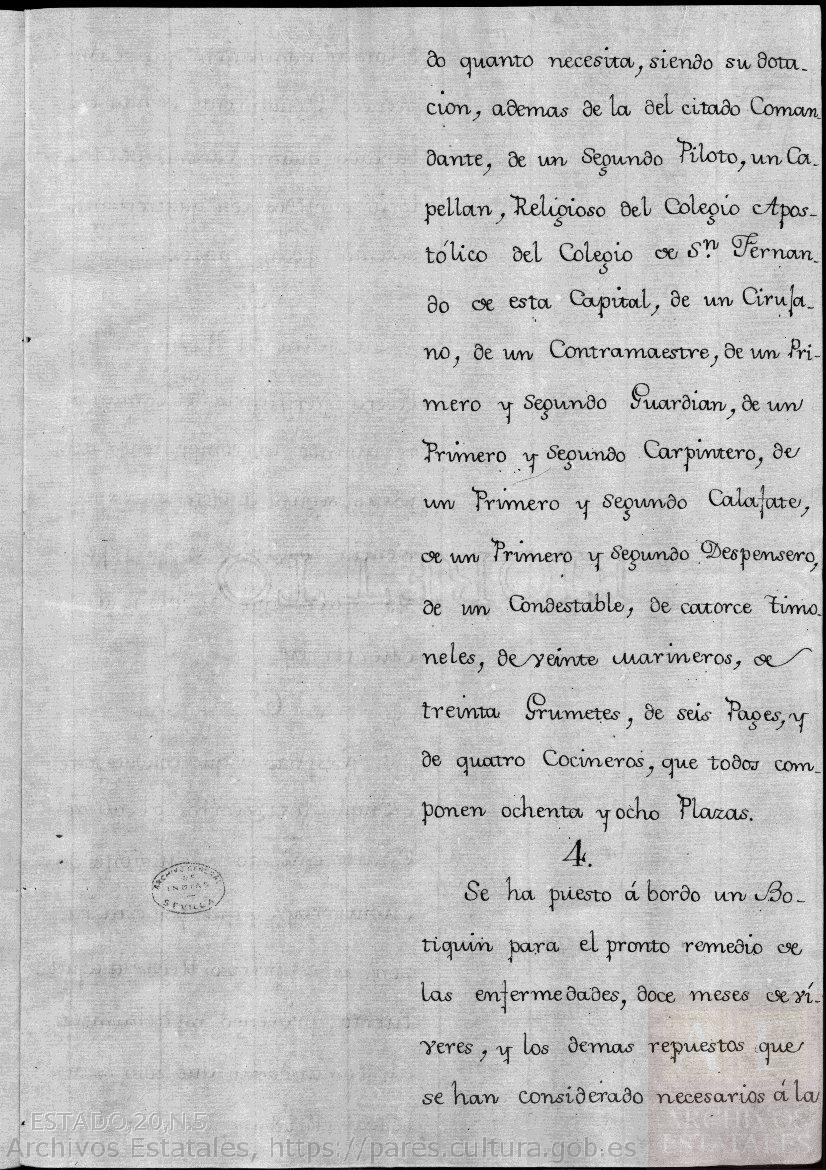 do quanto necesita, siendo su dota-
cion, ademas de la del citado Coman-
dante, de un Segundo Piloto, un Ca-
pellan, Religioso del Colegio Apos-
tólico del Colegio de Sn. Fernan-
do de esta Capital, de un Ciruja-
no, de un Contramaestre, de un Pri-
mero y Segundo Guardian, de un
Primero y Segundo Carpintero, de
un Primero y Segundo Calafate,
de un Primero y Segundo Despensero,
de un Condestable, de catorce Timo-
neles, de veinte marineros, de
treinta Grumetes, de seis Pages, y
de quatro Cocineros, que todos com-
ponen ochenta y ocho Plazas.
4.
Se ha puesto á bordo un Bo-
tiquin para el pronto remedio de
las enfermedades, doce meses de ví-
veres, y los demas repuestos que
se han considerado necesarios á la
ARCHIVO GENERAL
DE
INDIAS
SEVILLA
ESTADO,20,N.5
Archivos Estatales, https://pares.cultura.gob.es
ARCHIVOS
ESTATALES